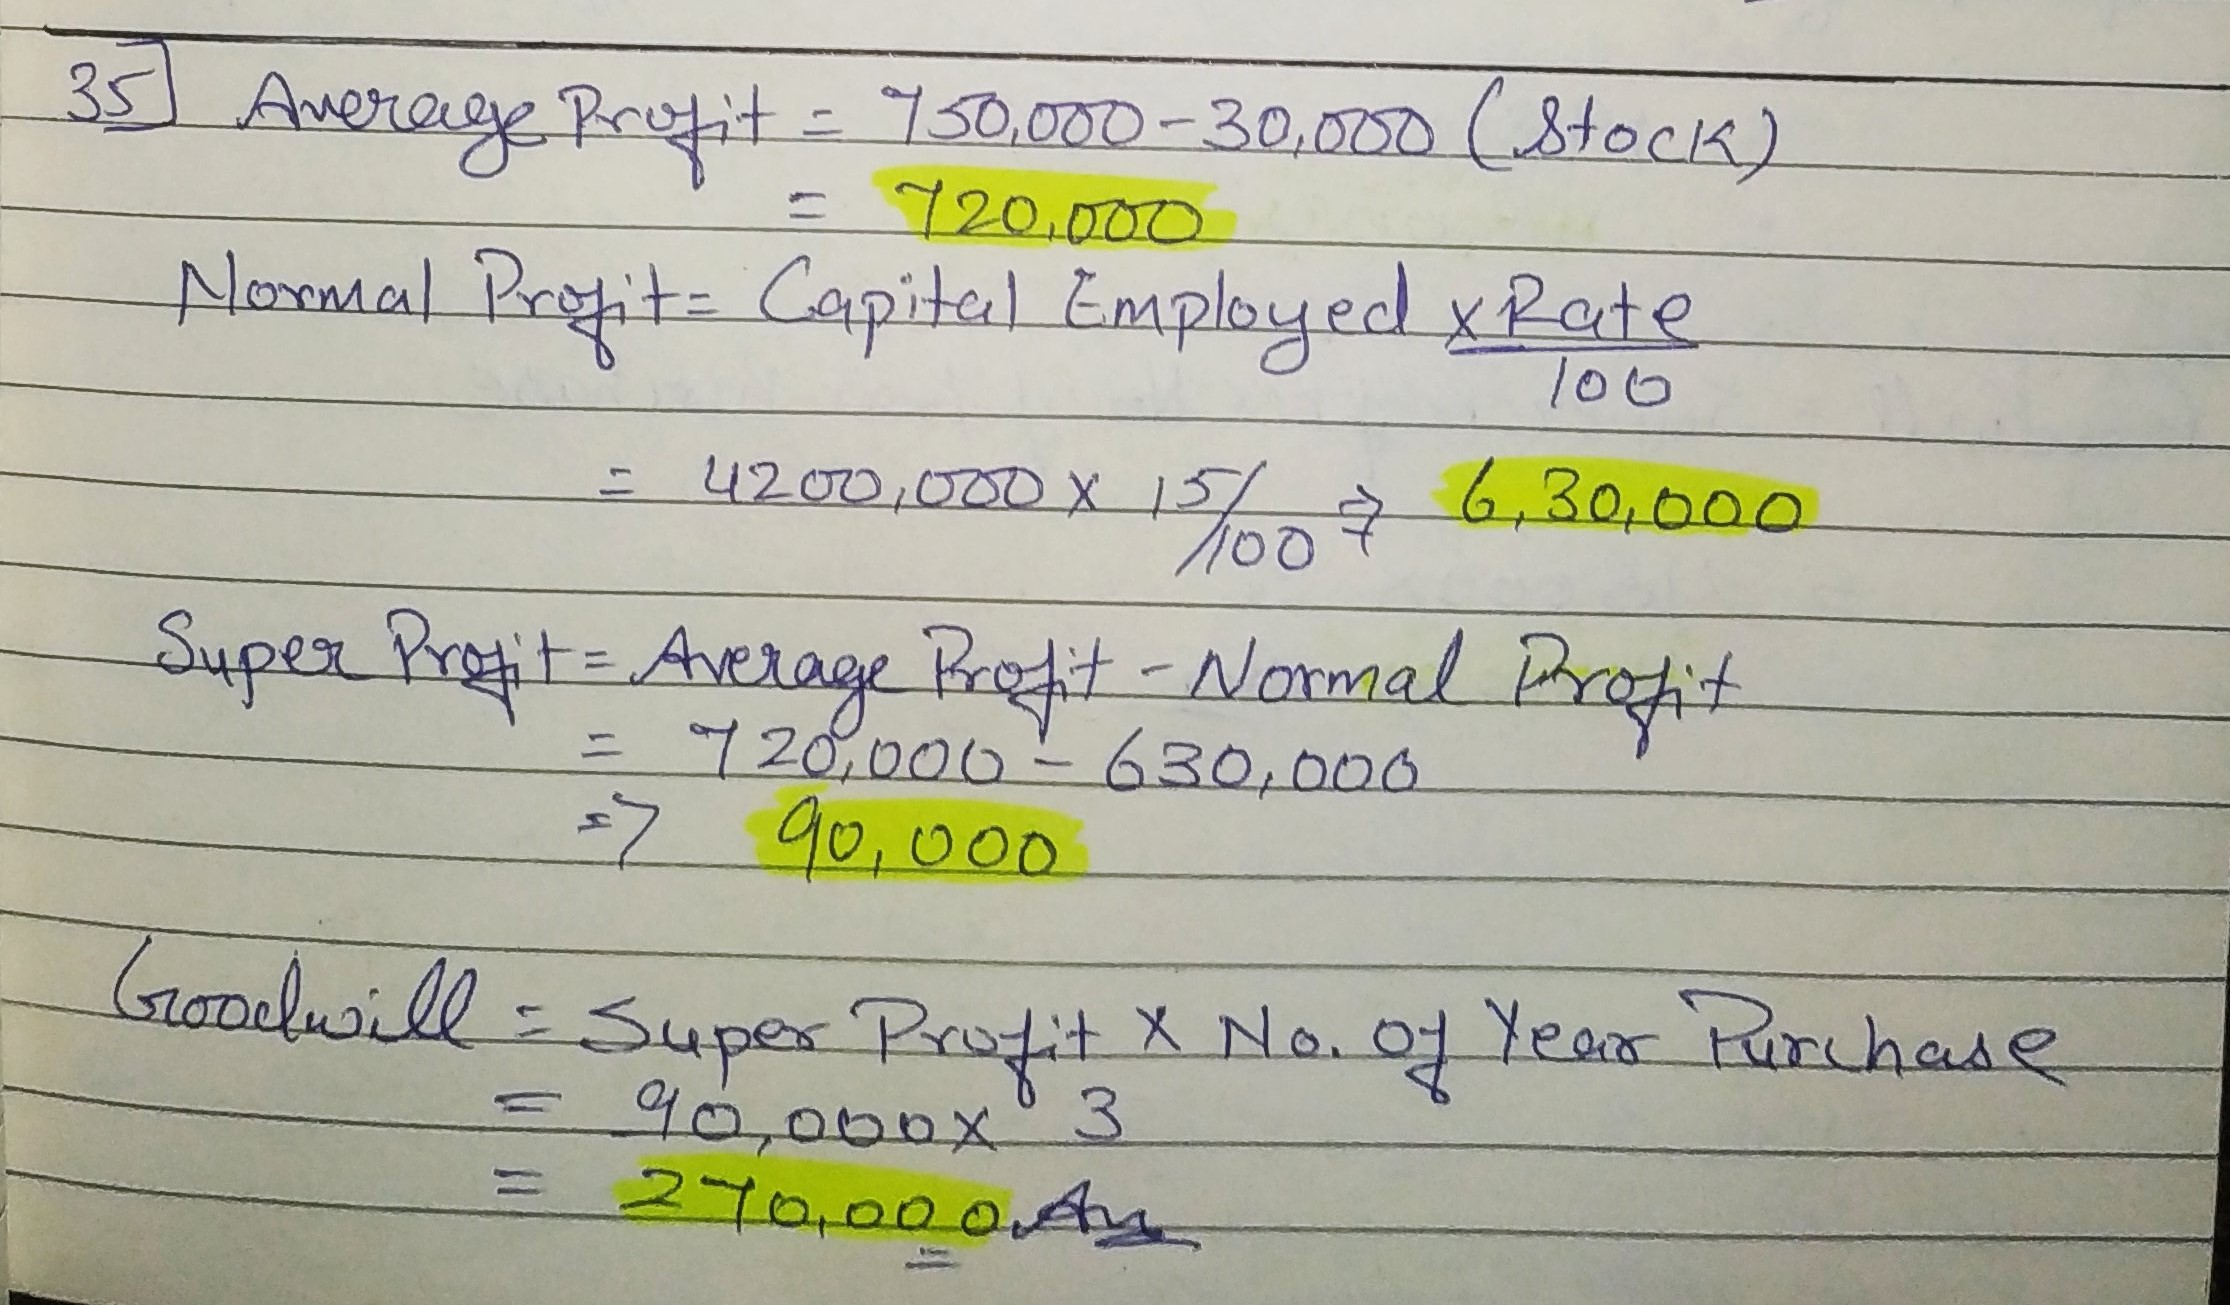 35] Average Profit = 750,000 - 30,000 (Stock)
= 720,000
Normal Profit = Capital Employed x Rate
100
= 4200,000 x 15/100 => 6,30,000
Super Profit = Average Profit - Normal Profit
= 720,000 - 630,000
=> 90,000
Goodwill = Super Profit x No. of Year Purchase
= 90,000 x 3
= 270,000 Ans